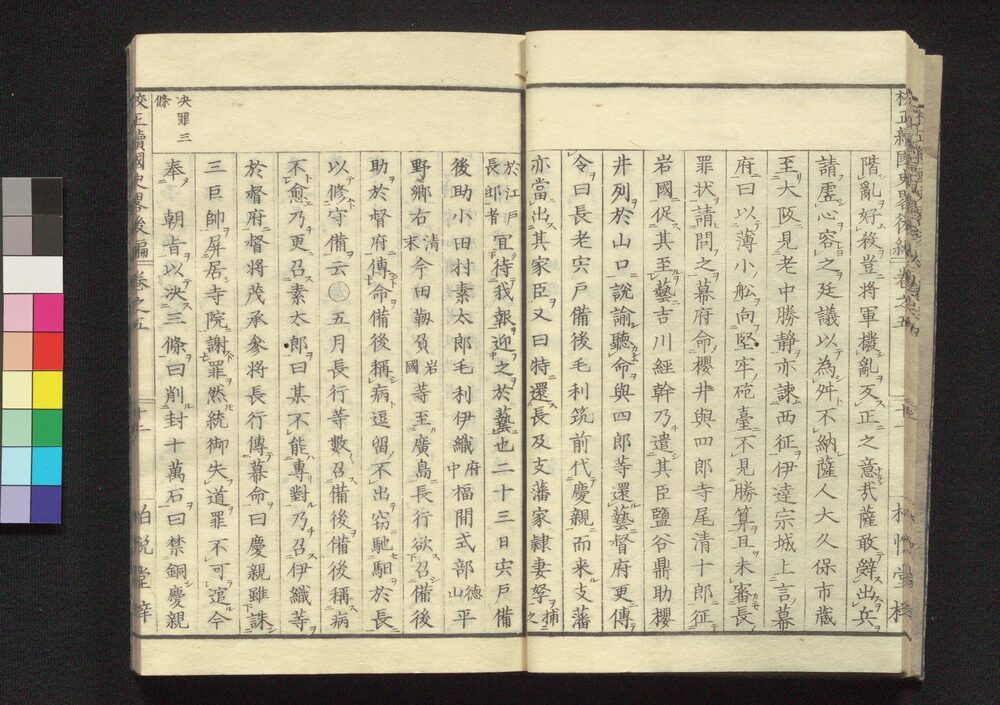 階亂好殺豈將軍撥亂反正之意哉薩敢辭出兵
請虛心容之廷議以為舛不納薩人大久保市蔵
至大阪見老中勝靜亦諫西征伊達宗城上言幕
府曰以薄小舩向堅牢砲臺不見勝算且未審長
罪状請問之幕府命櫻井與四郎寺尾清十郎征
岩國促其至藝吉川經幹乃遣其臣鹽谷鼎助櫻
井列於山口說諭聽命與四郎等還藝督府更傳
令曰長老宍戶備後毛利筑前代慶親而来支藩
亦當出其家臣又曰特還長及支藩家隷妻孥捕之
於江戶長邸者宜待我報迎之於藝也二十三日宍戶備
後助小田村素太郎毛利伊織府中福開式部德山平
野鄉右清末今田靱負岩國等至廣島長行欲召備後
助於督府傳命備後稱病逗留不出窃馳駟於長
以修守備云〇五月長行等數召備後備後稱病
不愈乃更召素太郎曰某不能專對乃召伊織等
於督府督將茂承參將長行傳幕命曰慶親雖誅
三巨帥屏居寺院謝罪然統御失道罪不可逭今
奉　朝旨以决三條曰削封十萬石曰禁錮慶親
决罪三條
校正續國史畧後編　卷之五　十二　柏悦堂梓